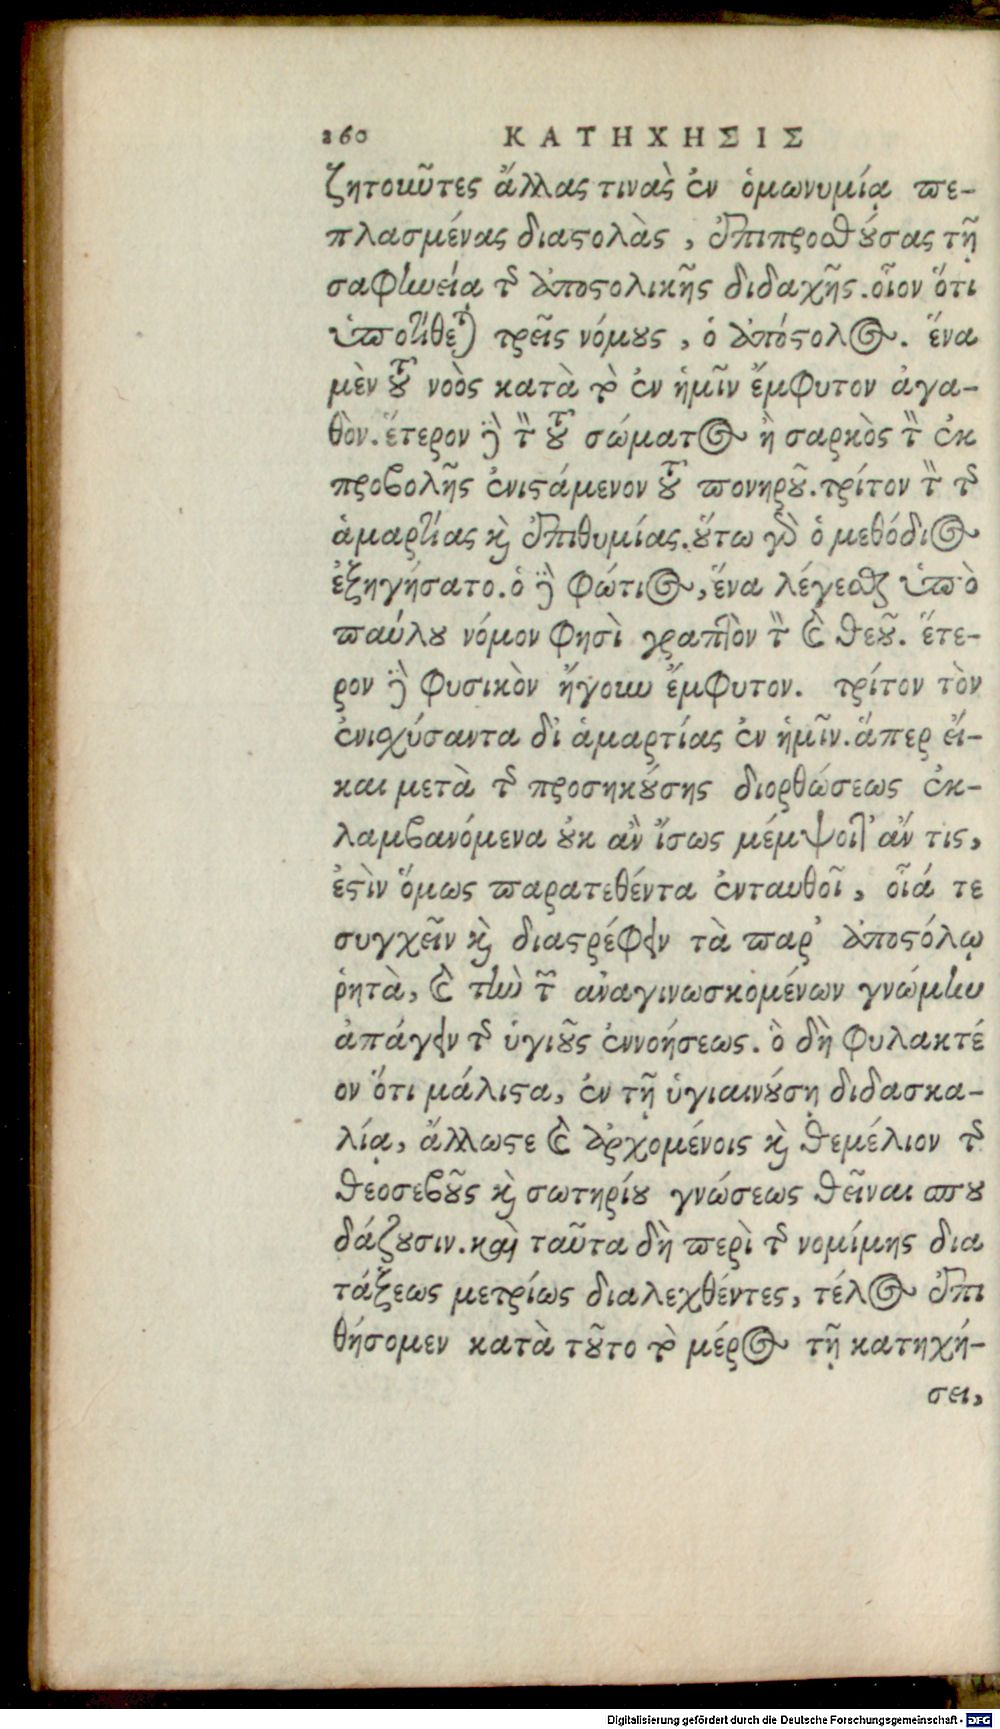 260 ΚΑΤΗΧΗΣΙΣ
ζητοιῦτες ἄλλας τινὰς ἐν ὁμωνυμίᾳ πε-
πλασμένας διαστολὰς, ἐπιπροσθούσας τῇ
σαφηνείᾳ τῆς ἀποστολικῆς διδαχῆς. οἷον ὅτι
ὑποτίθεται τρεῖς νόμους, ὁ ἀπόστολος. ἕνα
μὲν τοῦ νοὸς κατὰ τὸ ἐν ἡμῖν ἔμφυτον ἀγα-
θὸν. ἕτερον δὲ τὸν τοῦ σώματος ἢ σαρκὸς τὸν ἐκ
προβολῆς ἐνιστάμενον τοῦ πονηροῦ. τρίτον τὸν τῆς
ἁμαρτίας καὶ ἐπιθυμίας. οὕτω γὰρ ὁ μεθόδιος
ἐξηγήσατο. ὁ δὲ φώτιος, ἕνα λέγεσθαι ὑπὸ
παύλου νόμον φησὶ γραπτὸν τὸν τοῦ θεοῦ. ἕτε-
ρον δὲ φυσικὸν ἤγουν ἔμφυτον. τρίτον τὸν
ἐνισχύσαντα δι ἁμαρτίας ἐν ἡμῖν. ἅπερ εἴ-
και μετὰ τῆς προσηκούσης διορθώσεως ἐκ-
λαμβανόμενα οὐκ ἂν ἴσως μέμψοιτ' ἄν τις,
ἐστὶν ὅμως παρατεθέντα ἐνταυθοῖ, οἷά τε
συγχεῖν καὶ διαστρέφειν τὰ παρ' ἀποστόλῳ
ῥητὰ, καὶ τὴν τῶν ἀναγινωσκομένων γνώμην
ἀπάγειν τῆς ὑγιοῦς ἐννοήσεως. ὃ δὴ φυλακτέ
ον ὅτι μάλιστα, ἐν τῇ ὑγιαινούσῃ διδασκα-
λίᾳ, ἄλλωστε καὶ ἀρχομένοις καὶ θεμέλιον τῆς
θεοσεβοῦς καὶ σωτηρίου γνώσεως θεῖναι σπου
δάζουσιν. καὶ ταῦτα δὴ περὶ τῆς νομίμης δια
τάξεως μετρίως διαλεχθέντες, τέλος ἐπι
θήσομεν κατὰ τοῦτο τὸ μέρος τῇ κατηχή-
σει,
Digitalisierung gefördert durch die Deutsche Forschungsgemeinschaft - DFG